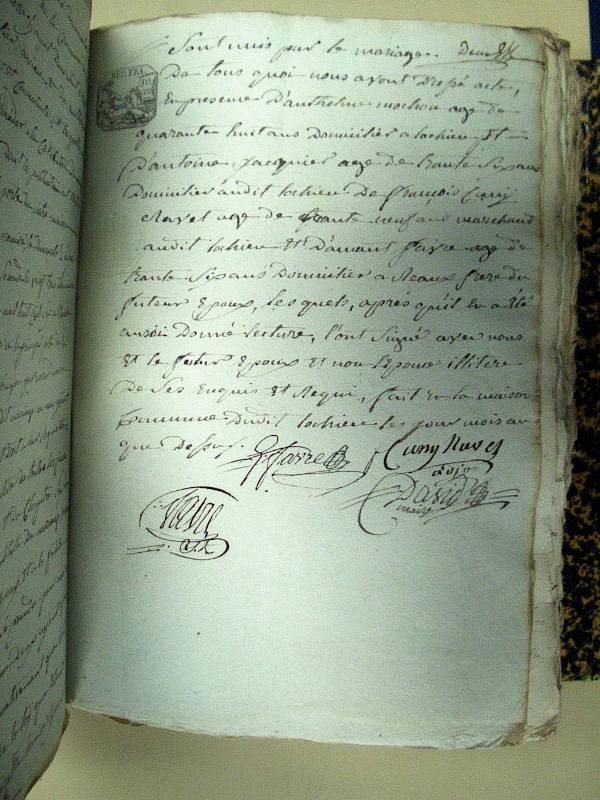 Sont unis par le mariage.
De tous quoi nous avont Dressé acte,
En presence D'anthelme mochon age de
quarante huit ans Domicilier a lochieu, Et
D'antoine jacquier age De trante Six ans
Domicilier audit lochieu De françois Cuny
Ravet age de trante neuf ans marchand
audit lochieu Et D'amant favre age De
trante Six ans Domicilier a frere du
futeur Epoux, les quels, apres qu'il En a Eté
aussi Donné lecture, l'ont Signé avec nous
Et le futur Epoux Et non l'Epouse illitere
De Ses Enquis Et Requi, fait En la maison
Commune Dudit lochieu les jour mois an
que Dessus.
favre Cuny Ravet
David
maire
favre